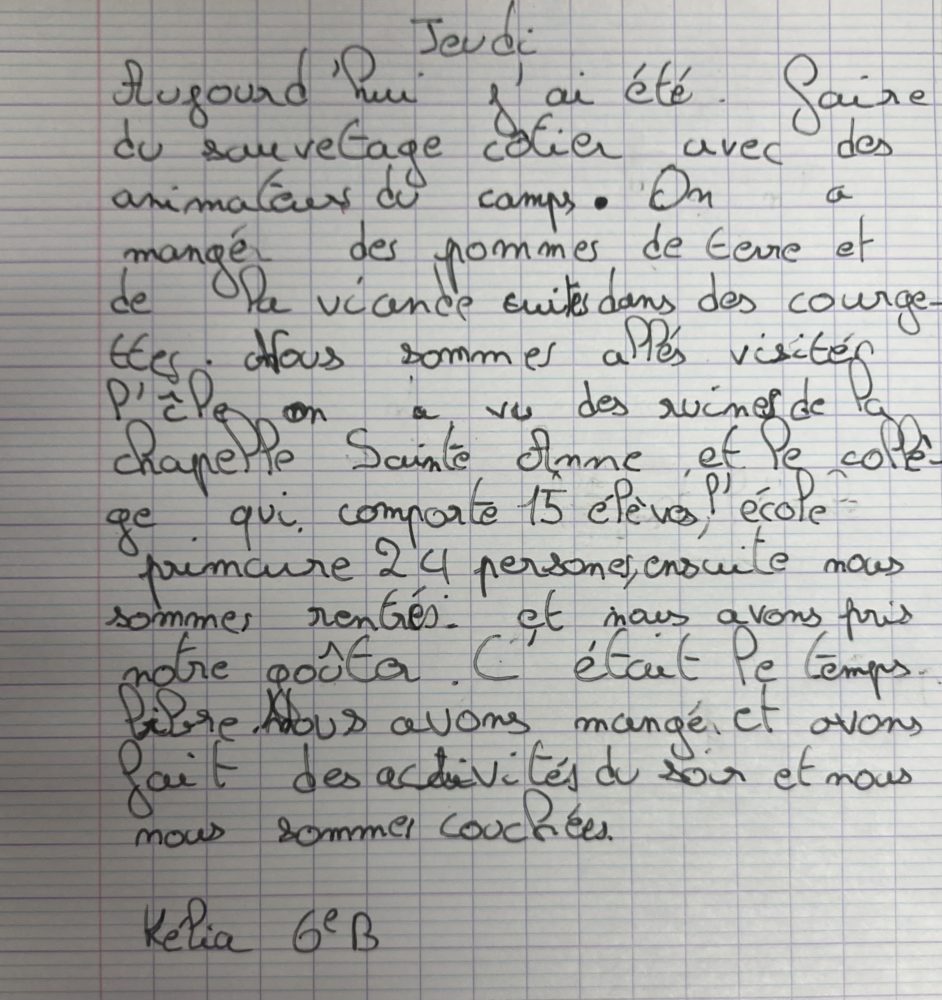 Jeudi
Augourd'hui j'ai été faire
du sauvetage côtier avec des
animateurs du camps. On a
mangé des pommes de terre et
de la viande cuites dans des courge-
ttes. Nous sommes allés visiter
l'île on a vu des ruines de la
chapelle Sainte Anne et le collè-
ge qui comporte 15 élèves, l'école
primaire 24 persones, ensuite nous
sommes rentrés. et nous avons pris
notre goûter. C'était le temps
libre. Nous avons mangé et avons
fait des activités du soir et nous
nous sommes couchées.
Kelia 6e B